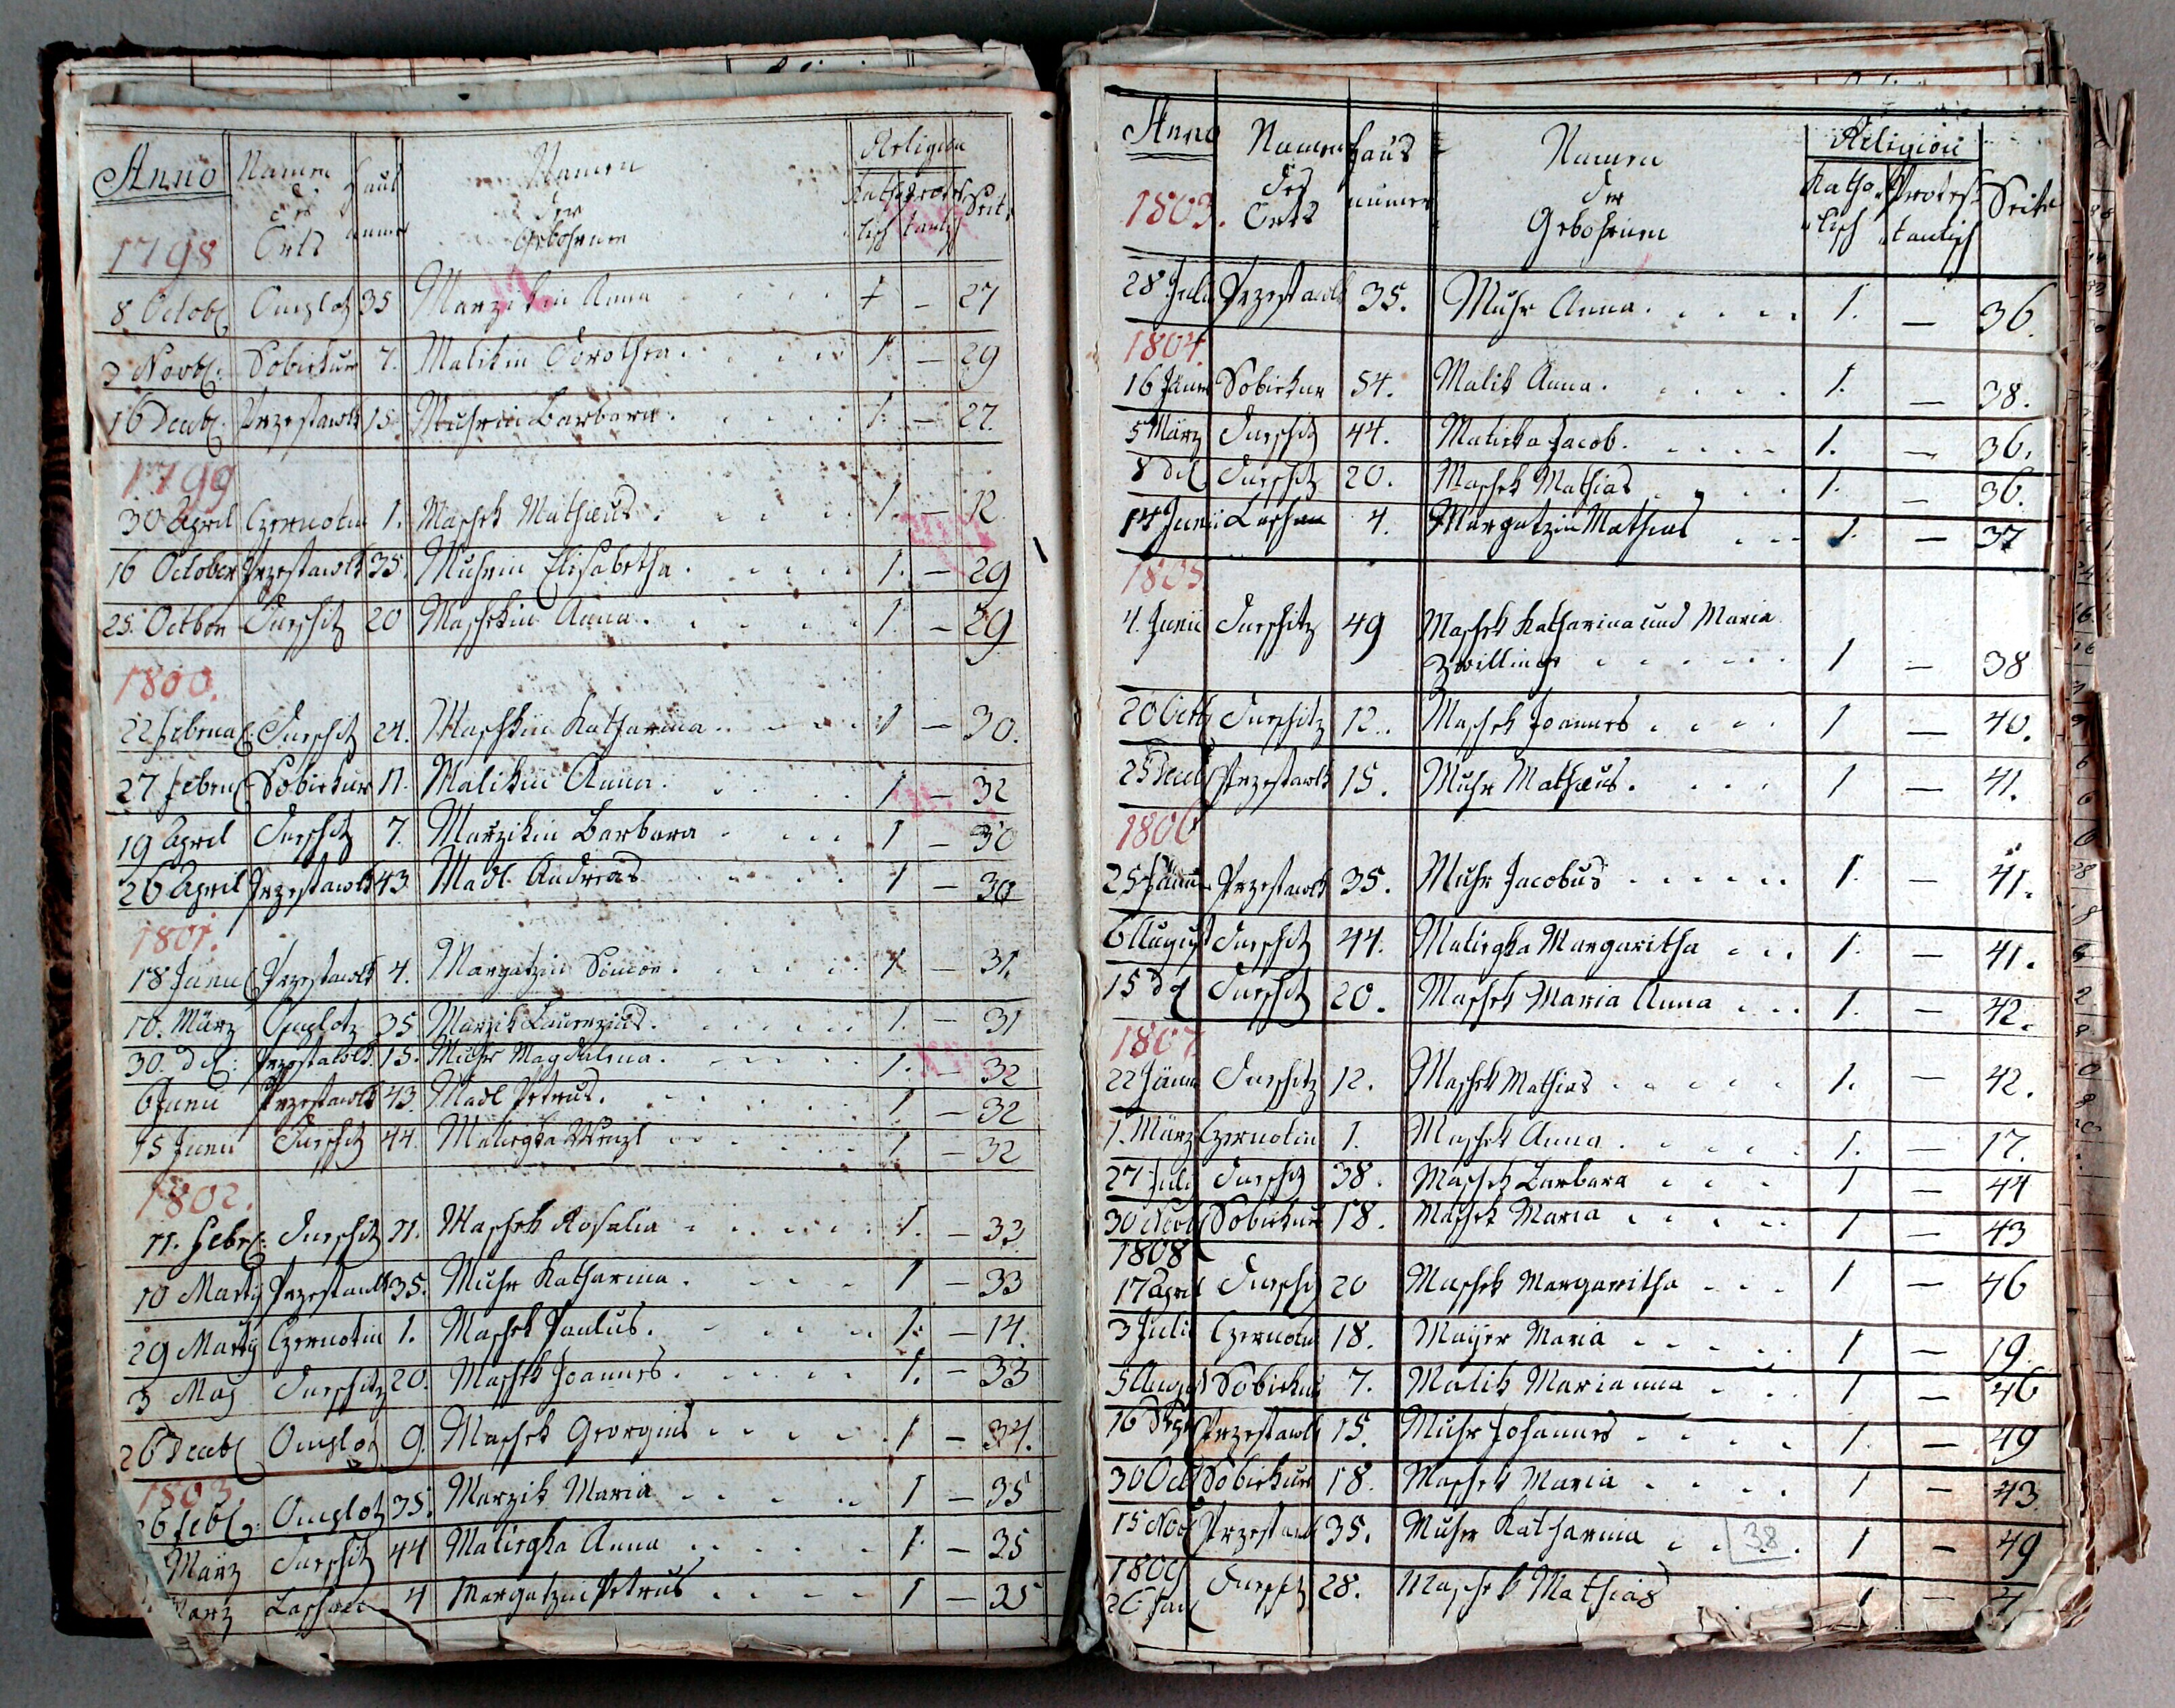 Anno Namen Haus Namen Religion
des der Katho Protes Seite
1798 Orts numer Gebohrnen lisch tantisch
8 Octob Omplotz 35 Marzikin Anna . . . . 1 — 27
3 Novb: Sobiekur 7. Malikin Dorothea . . . . 1. — 29
16 Decb Przestawlk 15. Muhrin Barbara . . . . 1. — 27
1799
30 April Czernotin 1. Maschek Mathæus . . . . 1. — 12
16 October Przestawlk 35. Muhrin Elisabetha . . . . 1. — 29
25. Octber Jurschitz 20 Maschekin Anna . . . . 1. — 29
1800.
22 Februa Jurschitz 24. Maschkin Katharina . . . . 1 — 30.
27 Febru Sobiekur 11. Malikin Anna . . . . 1 — 32
19 April Jurschitz 7. Marzikin Barbara . . . . 1 — 30
26 April Przestawlk 43. Madl Andreas . . . . 1 — 30
1801.
18 Janu Przestawlk 4. Margatzin Simon . . . . 1 — 31.
10. März Omplotz 35 Marzik Laurenzius . . . . 1. — 31
30. d: Przestawlk. 15. Muhr Magdalena . . . . 1. — 32
6 Junii Przestawlk 43. Madl Petrus . . . . 1 — 32
15 Junii Jurschitz 44. Matiegka Wenzl . . . . 1 — 32
1802.
11. Febr: Jurschitz 11. Maschek Rosalia . . . . 1. — 33
10 Martij Przestawlk 35. Muhr Katharina . . . . 1 — 33
29 Martij Czernotin 1. Maschek Paulus . . . . 1. — 14.
3 May Jurschitz 20. Maschek Joannes . . . . 1. — 33
26 Decb Omplotz 9. Maschek Georgius . . . . 1 — 34.
1803
26 Feb: Omplotz 35. Marzik Maria . . . . 1 — 35
März Jurschitz 44 Matiegka Anna . . . . 1. — 35
März Laschan 4 Margatzin Petrus . . . . 1 — 35
Anno Namen Haus Namen Religion
des numer der Katho Protes Seite
1803. Orts Gebohrnen lisch tantisch
28 Julii Przestawlk 35. Muhr Anna . . . . 1. — 36.
1804
16 Jäner Sobiekur 54. Malik Anna . . . . 1. — 38.
5 März Jurschitz 44. Matieka Jacob . . . . 1. — 36.
8 d Jurschitz 20. Maschek Mathias . . . . 1. — 36.
14 Junii Laschan 4. Margatzin Mathias . . . 1. — 37
1805
4. Junii Jurschitz 49 Maschek Katharina und Maria
Zwillinge . . . . . . 1 — 38
20 Octb Jurschitz 12. Maschek Joannes . . . . 1 — 40.
25 Decb Przestawlk 15. Muhr Mathæus . . . . 1 — 41.
1806
25 Jäner Przestawlk 35. Muhr Jacobus . . . . . 1. — 41.
6 August Jurschitz 44. Matiegka Margaritha . . . 1. — 41.
15 d Jurschitz 20. Maschek Maria Anna . . . 1. — 42.
1807
22 Jänner Jurschitz 12. Maschek Mathias . . . . . 1. — 42.
1. März Czernotin 1. Maschek Anna . . . . . 1. — 17.
27 July Jurschitz 38. Maschek Barbara . . . . 1 — 44
30 Novb Sobiekur 18. Maschek Maria . . . . . 1 — 43
1808
17 April Jurschitz 20 Maschek Margaritha . . . 1 — 46
3 Julii Czernotin 18. Mayer Maria . . . . . 1 — 19
5 August Sobiekur 7. Malik Marianna . . . 1 — 46
16 Przestawlk 15. Muhr Johannes . . . . 1. — 49
30 Oct Sobiekur 18. Maschek Maria . . . . 1 — 43
15 Nov Przestawlk 35. Muhr Katharina . . . . 1 — 49
38
1809
26 Jan Jurschitz 28. Maschek Mathias . . 1 —